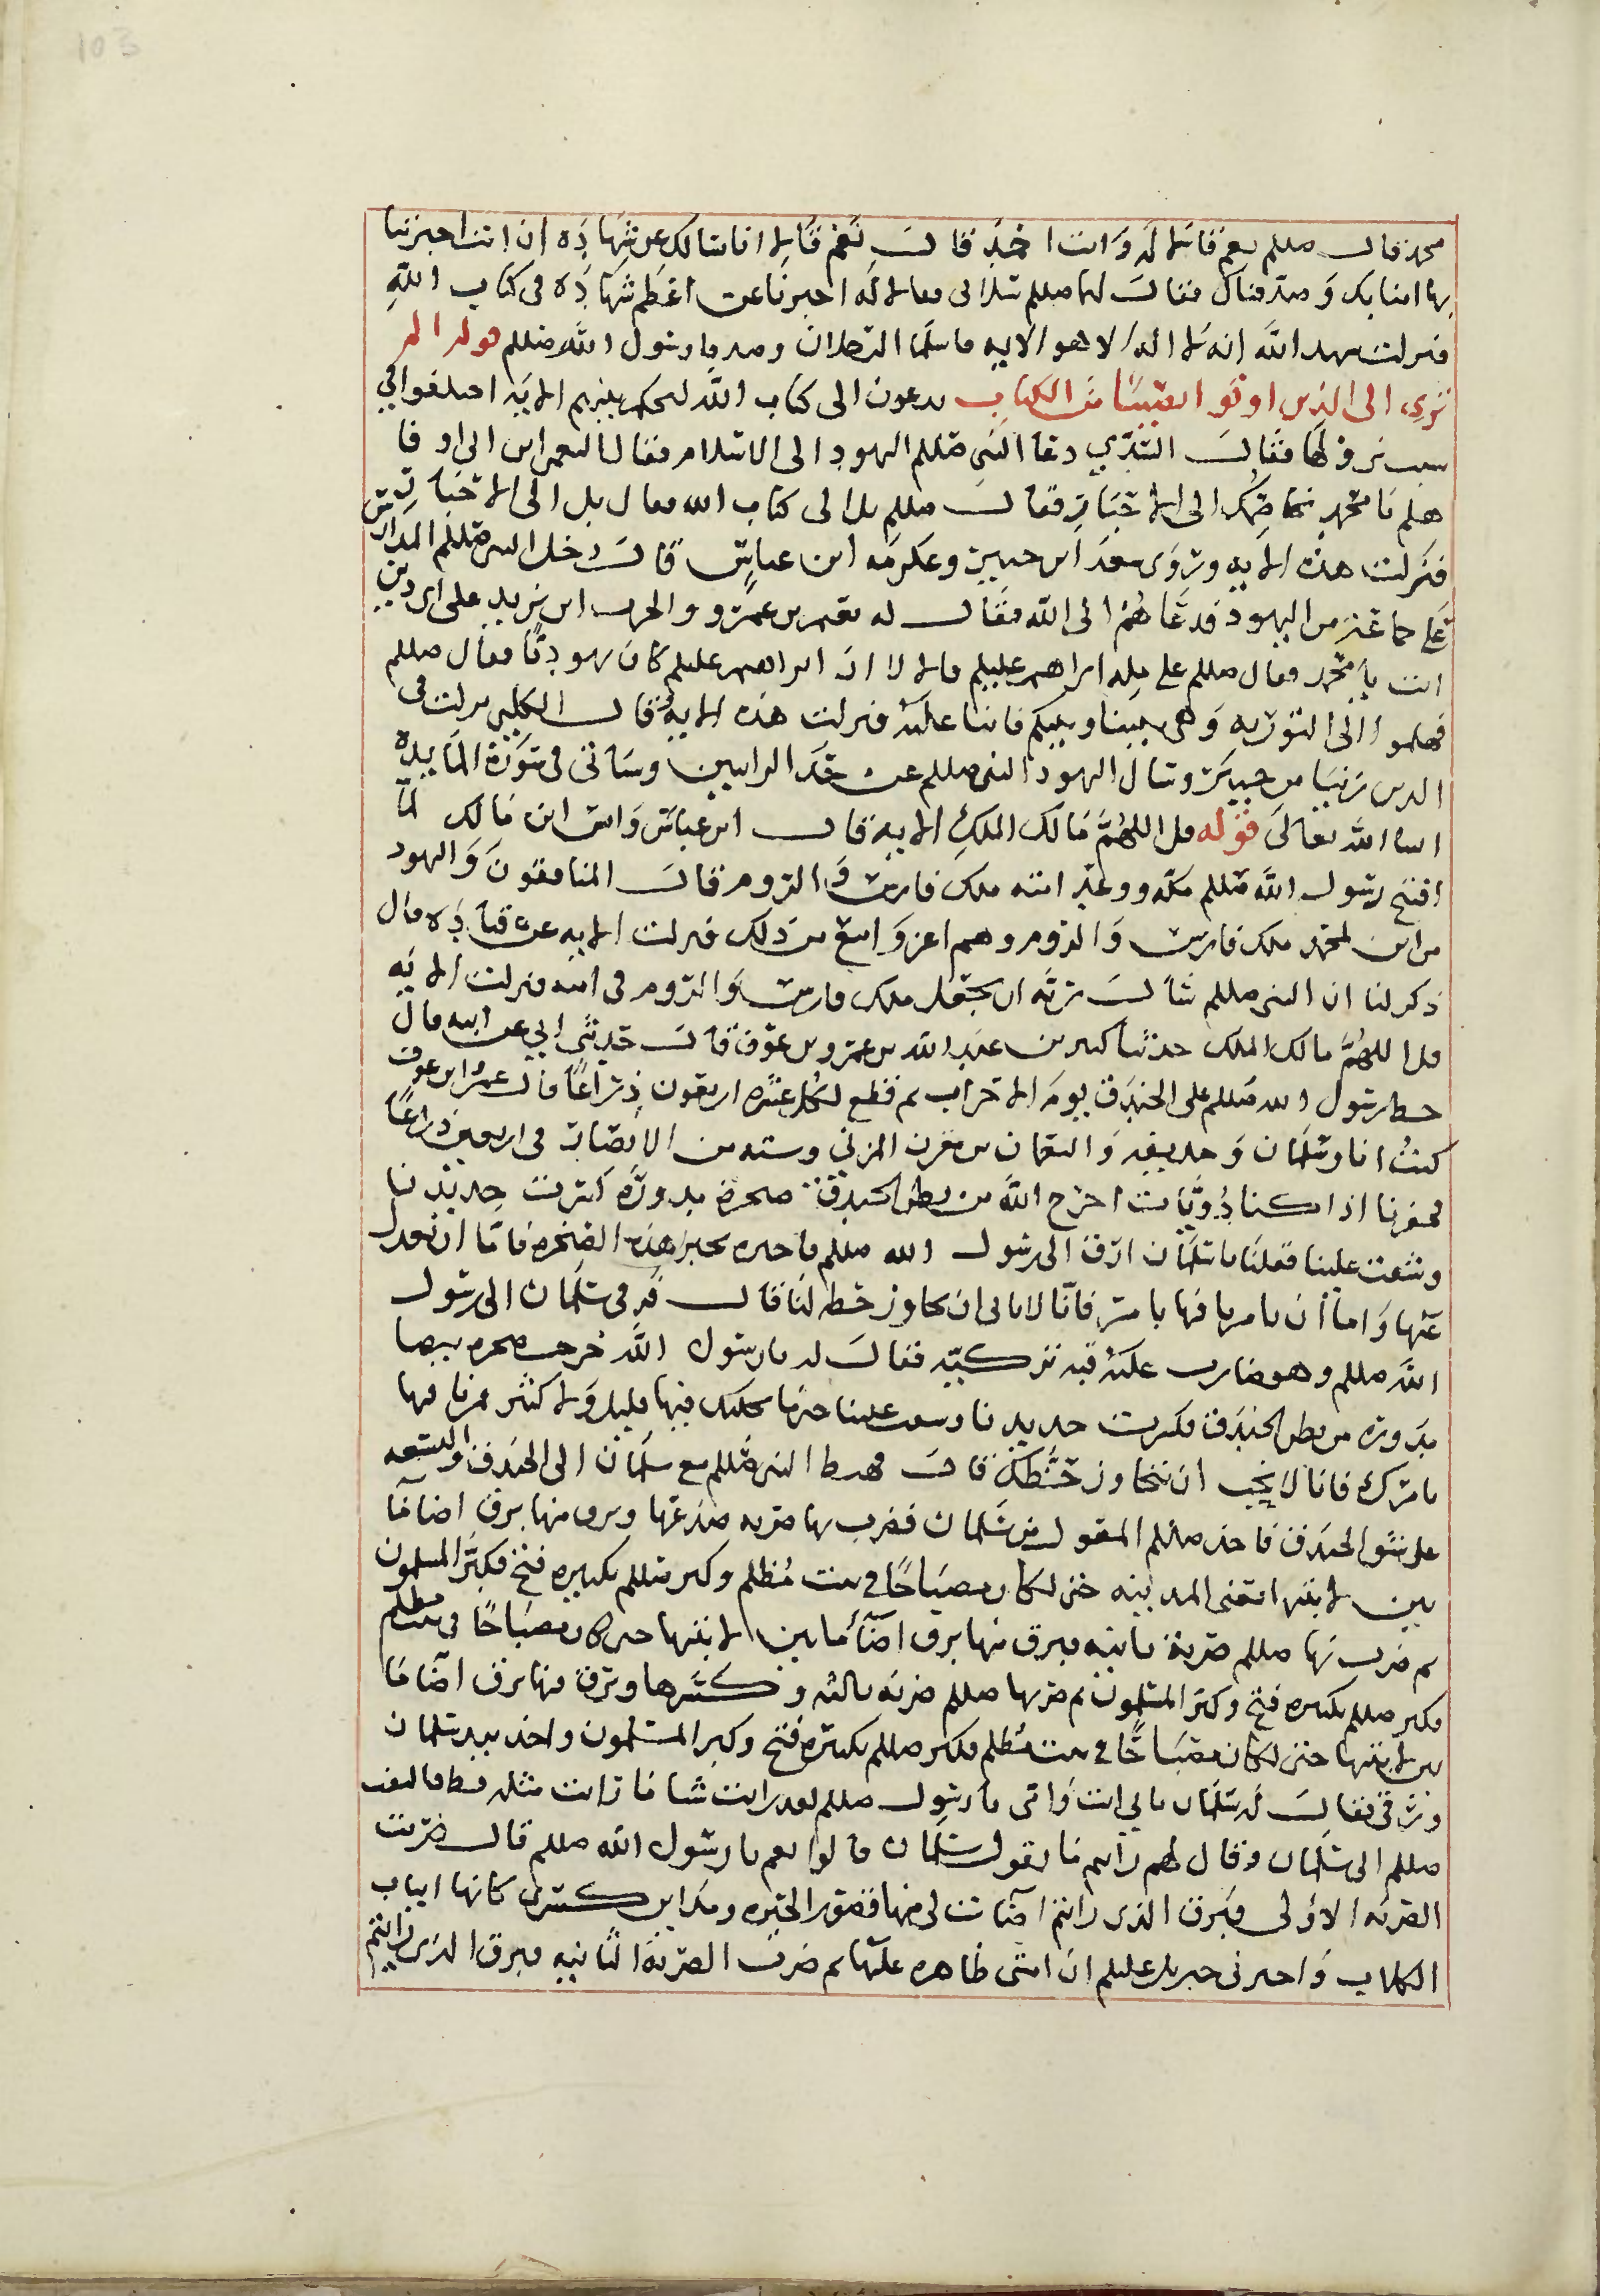 103
محمد قال صللم نعم قالا له وانت احمد قال نعم قالا انا نسالك عن شهادة ان انت اخبرتنا
بها امنا بك وصدقناك فقال لهما صللم سلاني فقالا له اخبرنا عن اعظم شهادة في كتاب الله
فنزلت شهد الله انه لا اله الا هو الايه فاسلما الرجلان وصدقا رسول الله صللم قوله الم
ترى الى الذين اوتوا نصيبا من الكتاب يدعون الى كتاب الله ليحكم بينهم الايه اختلفوا في
سبب نزولها فقال السدي دعا النبي صللم اليهود الى الاسلام فقال النعمان ابن ابي اوفا
هلم يا محمد نخاصمك الى الاحبار فقال صللم بل الى كتاب الله فقال بل الى الاحبار
فنزلت هذه الايه وروى سعد ابن جبير وعكرمه ابن عباس قال دخل النبي صللم المدارس
على جماعة من اليهود فدعاهم الى الله فقال له نعيم بن عمرو والحرث ابن زيد على اي دين
انت يا محمد فقال صللم على مله ابراهيم عليلم قالا ان ابراهيم عليلم كان يهوديا فقال صللم
فهلموا الى التوريه وهي بيننا وبينكم فابيا عليه فنزلت هذه الايه وقال الكلبي نزلت في
الذين زنيا من خيبر وسال اليهود النبي صللم عن حد الزانيين وسياتي في سورة المايدة
ان شا الله تعالى قوله قل اللهم مالك الملك الايه قال ابن عباس وانس ابن مالك لما
افتتح رسول الله صللم مكه ووعد امته ملك فارس والروم قال المنافقون واليهود
من اين لمحمد ملك فارس والروم وهم اعز وامنع من ذلك فنزلت الايه عن قتاده قال
ذكر لنا ان النبي صللم سال ربه ان يجعل ملك فارس والروم في امته فنزلت الايه
قل اللهم مالك الملك حدثنا كثير بن عبد الله بن عمرو بن عوف قال حدثني ابي عن ابيه قال
خط رسول الله صللم على الخندق يوم الاحزاب ثم قطع لكل عشره اربعون ذراعا قال عمرو ابن عوف
كنت انا وسلمان وحذيفه والنعمان بن مقرن المزني وسته من الانصار في اربعين ذراعا
فحفرنا اذا كنا ذوياب اخرج الله من بطن الخندق صخرة مدورة كسرت حديدنا
وشقت علينا فقلنا يا سلمان ارق الى رسول الله صللم فاخبره بخبر هذه الصخرة فاما ان نعدل
عنها واما ان يامرنا فيها بامره فانا لا نحب ان نجاوز خطه لنا قال فرقي سلمان الى رسول
الله صللم وهو ضارب عليه قبه تركيه فقال له يا رسول الله خرجت صخره بيضا
مدوره من بطن الخندق فكسرت حديدنا وشقت علينا حتى ما يحتك فيها قليل ولا كثير فمرنا فيها
بامرك فانا لا نحب ان نتجاوز خطك قال فهبط النبي صللم مع سلمان الى الخندق والتسعه
على شق الخندق فاخذ صللم المعول من سلمان فضرب بها ضربه صدعتها وبرق منها برق اضا ما
بين لابتيها يعني المدينه حتى لكان مصباحا في بيت مظلم وكبر صللم تكبيره فتح فكبر المسلمون
ثم ضرب بها صللم ضربة ثانيه فبرق منها برق اضا ما بين لابتيها حتى كان مصباحا في بيت مظلم
فكبر صللم تكبيره فتح وكبر المسلمون ثم ضربها صللم ضربه ثالثه وكسرها وبرق منها برق اضا ما
بين لابتيها حتى لكان مصباحا في بيت مظلم فكبر صللم تكبيرة فتح وكبر المسلمون واخذ بيد سلمان
ورقي فقال له سلمان بابي انت وامي يا رسول صللم لقد رايت شيا ما رايت مثله قط فالتفت
صللم الى سلمان وقال لهم رايتم ما يقول سلمان قالوا نعم يا رسول الله صللم قال ضربت
الضربه الاولى فبرق الذي رايتم اضات لي منها قصور الحيره ومداين كسرى كانها انياب
الكلاب واخبرني جبريل عليلم ان امتي ظاهره عليها ثم ضربت الضربة الثانيه فبرق الذي رايتم